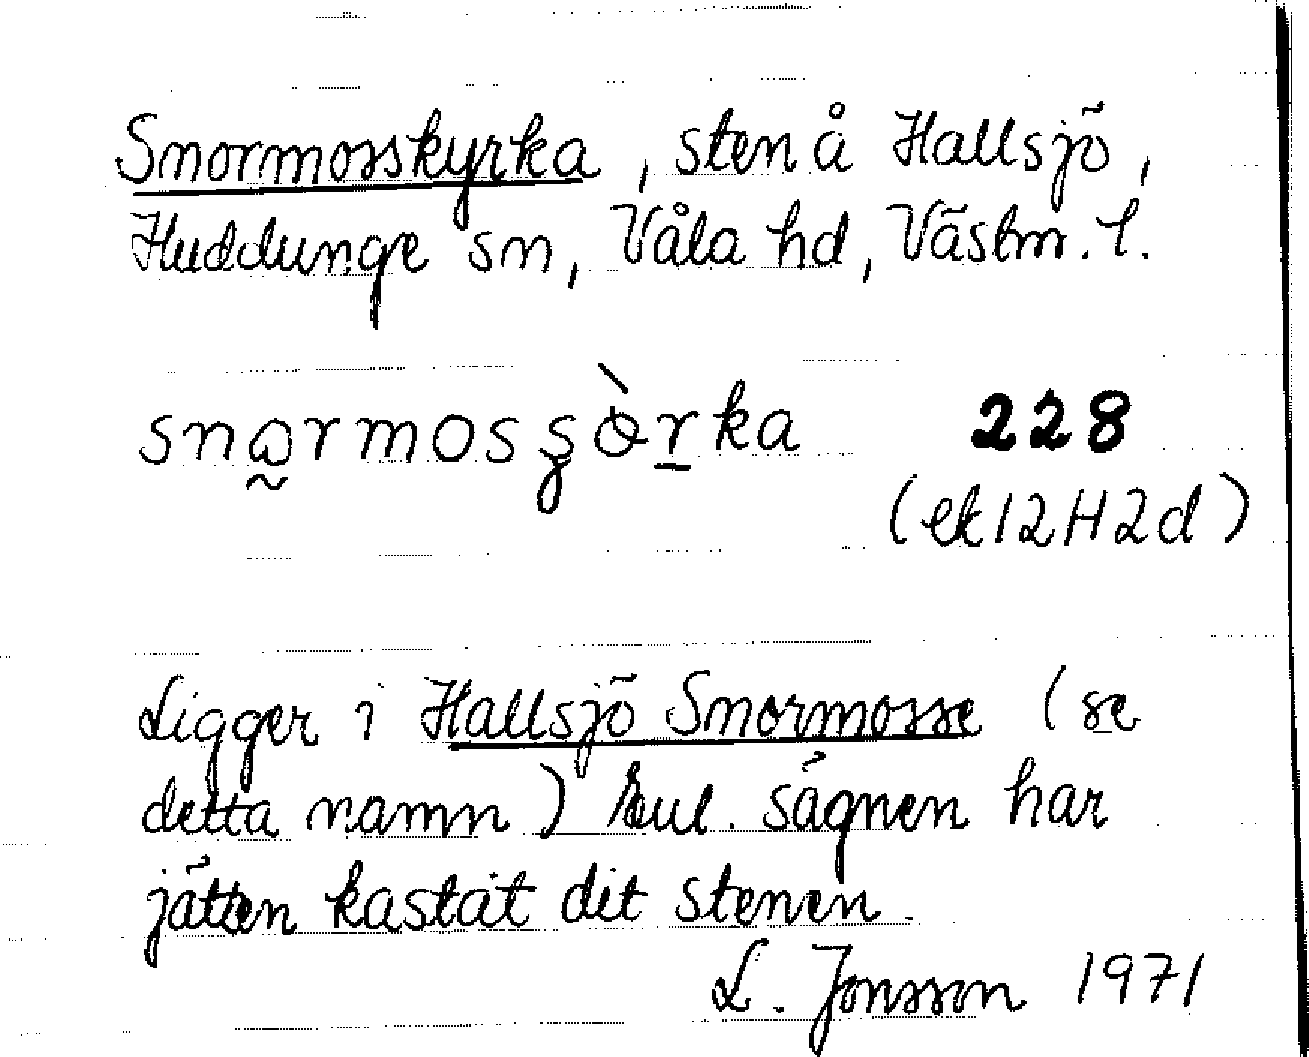 Snormosskyrka, sten å Hallsjö,
Huddunge sn, Våla hd, Västm. l.
snɷ̰rmosʂɵ̀r̠ka 228
(ek 12H2d)
Ligger i Hallsjö Snormosse (se
detta namn) Eul. sägnen har
jätten kastat dit stenen.
L. Jonsson 1971